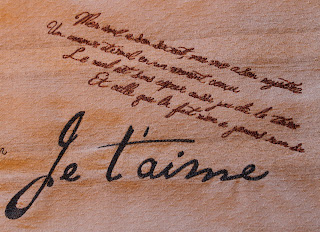 Mon âme a son secret ma vie a son mystère
Un amour éternel en un moment conçu
Le mal est sans espoir aussi j'ai dû le taire
Et celle qui l'a fait n'en a jamais rien su
Je t'aime